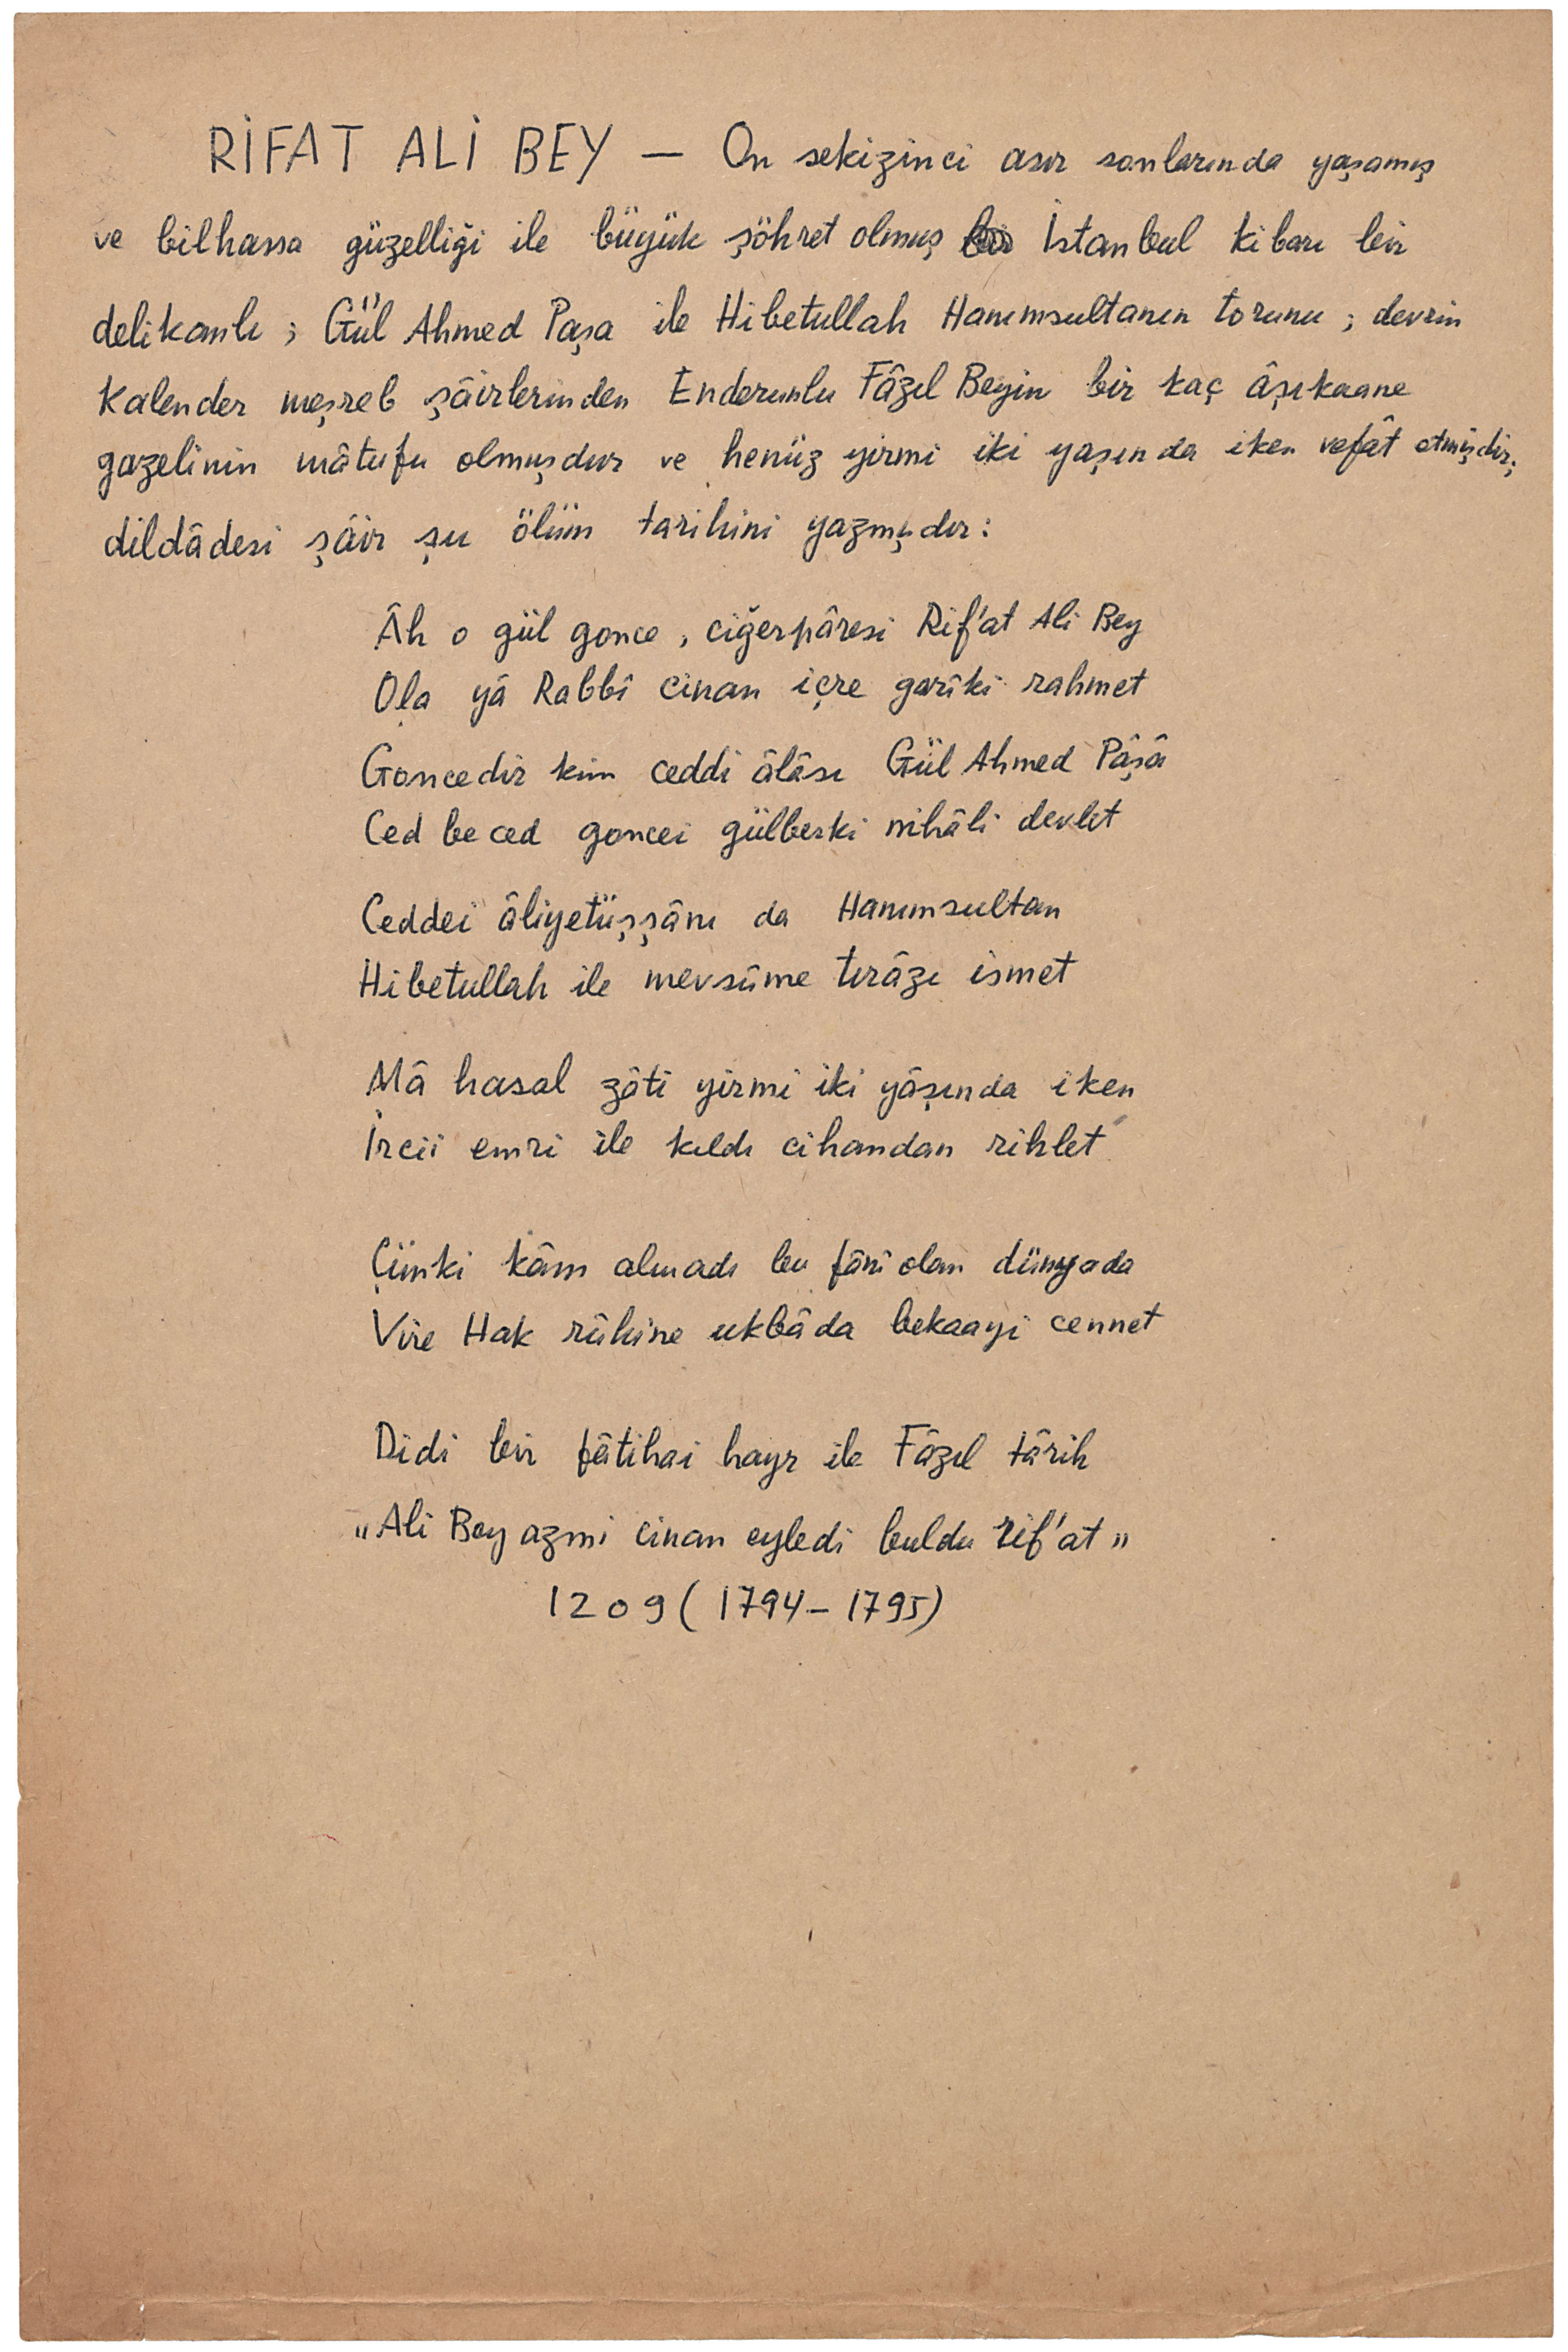 RİFAT ALİ BEY — On sekizinci asır sonlarında yaşamış
ve bilhassa güzelliği ile büyük şöhret olmuş İstanbul kibarı bir
delikanlı; Gül Ahmed Paşa ile Hibetullah Hanımsultanın torunu; devrin
kalender meşreb şâirlerinden Enderunlu Fâzıl Beyin bir kaç âşıkaane
gazelinin mâtufu olmuşdur ve henüz yirmi iki yaşında iken vefât etmişdir;
dildâdesi şâir şu ölüm tarihini yazmışdır:
Âh o gül gonce, ciğerpâresi Rif'at Ali Bey
Ola yâ Rabbî cinan içre garîki rahmet
Goncedir kim ceddi âlâsı Gül Ahmed Pâşâ
Ced be ced goncei gülberki nihâli devlet
Ceddei âliyetüşşânı da Hanımsultan
Hibetullah ile mevsûme tırâzı ismet
Mâ hasal zâti yirmi iki yâşında iken
İrcii emri ile kıldı cihandan rihlet
Çünki kâm almadı bu fânî olan dünyada
Vire Hak rûhine ukbâda bekaayi cennet
Didi bir fâtihai hayr ile Fâzıl târih
"Ali Bey azmi cinan eyledi buldu rif'at"
1209 (1794-1795)